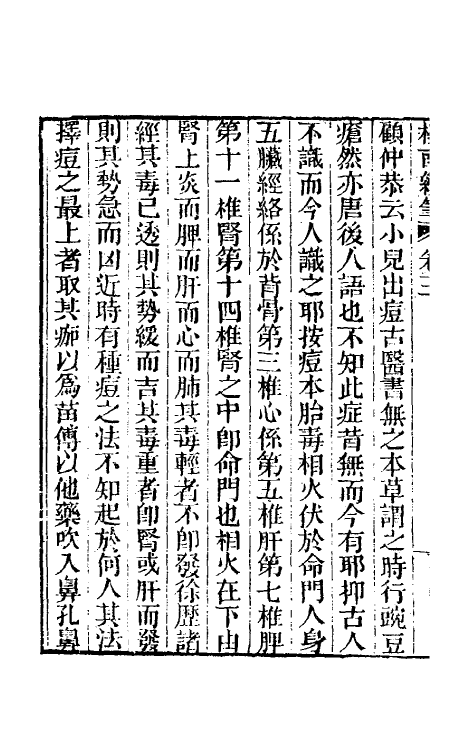 卷三
顧仲恭云小兒出痘古醫書無之本草謂之時行豌豆
瘡然亦唐後人語也不知此症昔無而今有耶抑古人
不識而今人識之耶按痘本胎毒相火伏於命門人身
五臟經絡係於背骨第三椎心係第五椎肝第七椎脾
第十一椎腎第十四椎腎之中卽命門也相火在下由
腎上炎而脾而肝而心而肺其毒輕者不卽發徐歷諸
經其毒已透則其勢緩而吉其毒重者卽腎或肝而發
則其勢急而凶近時有種痘之法不知起於何人其法
擇痘之最上者取其痂以爲苗傅以他藥吹入鼻孔鼻